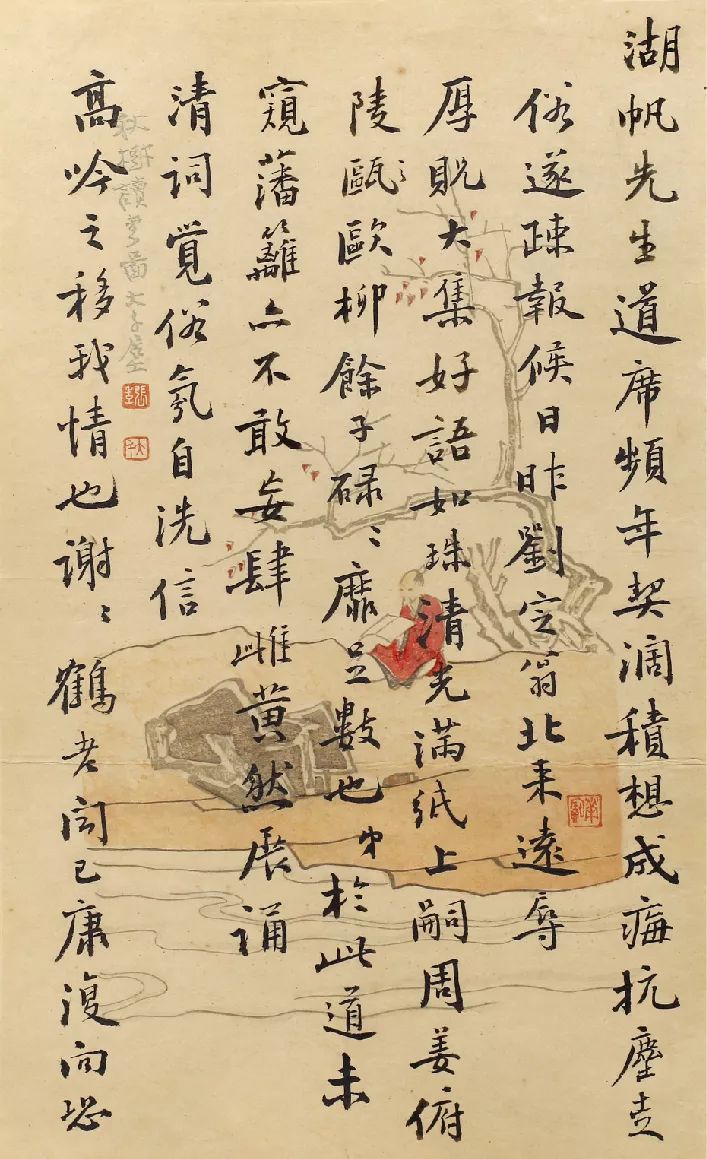 湖帆先生道席頻年契濶積想成痗抗塵走
俗遂疎報候日昨劉定翁北来遠辱
厚貺大集好語如珠清光滿紙上嗣周姜俯
陵甌歐柳餘子碌〻靡足數也弟於此道未
窺藩籬亦不敢妄肆雌黄然展誦
清詞覺俗氛自洗信
秋樹讀書圖大千
張爰
大千
高吟之移我情也謝〻鶴老聞已康復向恐